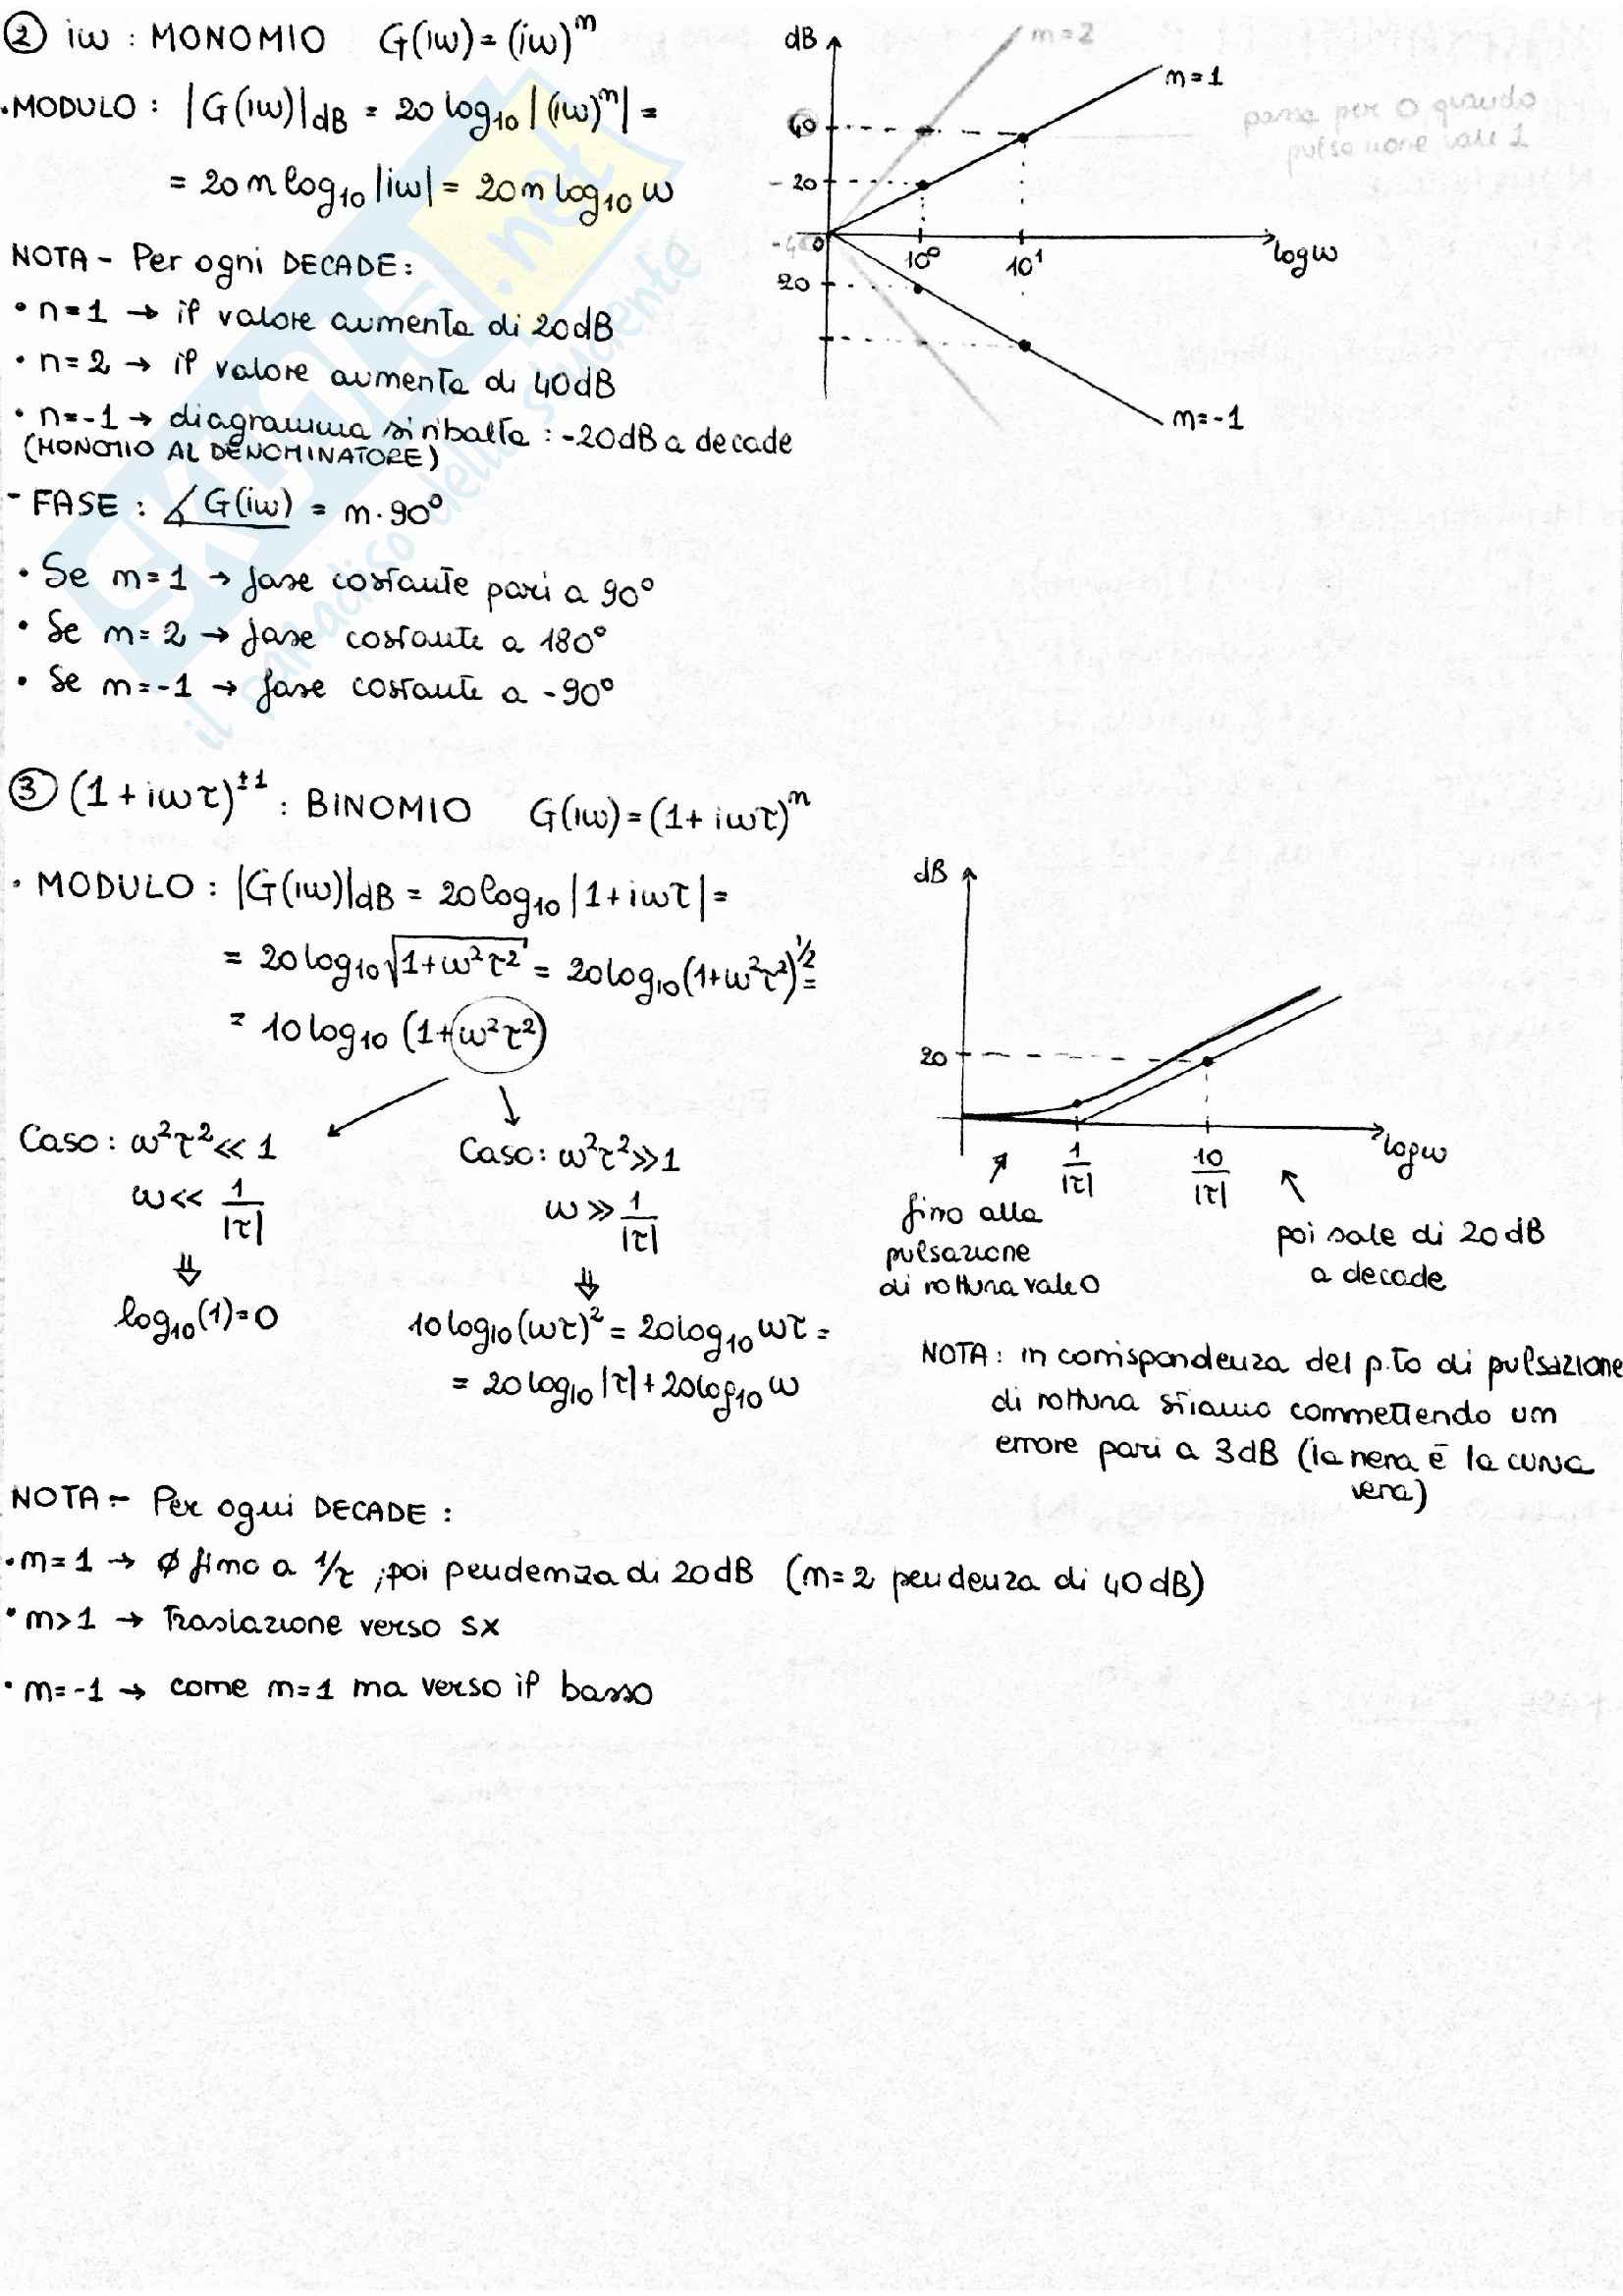 ② iω : MONOMIO G(iω) = (iω)^n
• MODULO : |G(iω)|dB = 20 log10 |(iω)^n| =
= 20 n log10 |iω| = 20n log10 ω
NOTA - Per ogni DECADE:
• n=1 → il valore aumenta di 20dB
• n=2 → il valore aumenta di 40dB
• n=-1 → diagramma si ribalta : -20dB a decade
(MONOMIO AL DENOMINATORE)
- FASE : ∡ G(iω) = n · 90°
• Se n=1 → fase costante pari a 90°
• Se n=2 → fase costante a 180°
• Se n=-1 → fase costante a -90°
dB
n=2
n=1
passa per 0 quando
pulsazione vale 1
40
- 20
-40
0
10^0
10^1
logω
20
n=-1
③ (1+iωτ)^±1 : BINOMIO G(iω) = (1+iωτ)^n
• MODULO : |G(iω)|dB = 20 log10 |1+iωτ| =
= 20 log10 √1+ω²τ² = 20 log10 (1+ω²τ²)^1/2 =
= 10 log10 (1+ω²τ²)
Caso : ω²τ² << 1
ω << 1/|τ|
⇓
log10 (1) = 0
Caso : ω²τ² >> 1
ω >> 1/|τ|
⇓
10 log10 (ωτ)² = 20 log10 ωτ =
= 20 log10 |τ| + 20 log10 ω
dB
20
1/|τ|
10/|τ|
logω
fino alla
pulsazione
di rottura vale 0
poi sale di 20 dB
a decade
NOTA : in corrispondenza del p.to di pulsazione
di rottura stiamo commettendo un
errore pari a 3dB (la nera è la curva
vera)
NOTA :- Per ogni DECADE :
• n=1 → ø fino a 1/τ ; poi pendenza di 20 dB (n=2 pendenza di 40 dB)
• n>1 → Traslazione verso sx
• n=-1 → come n=1 ma verso il basso
SKUOLA.net
il paradiso dello studente